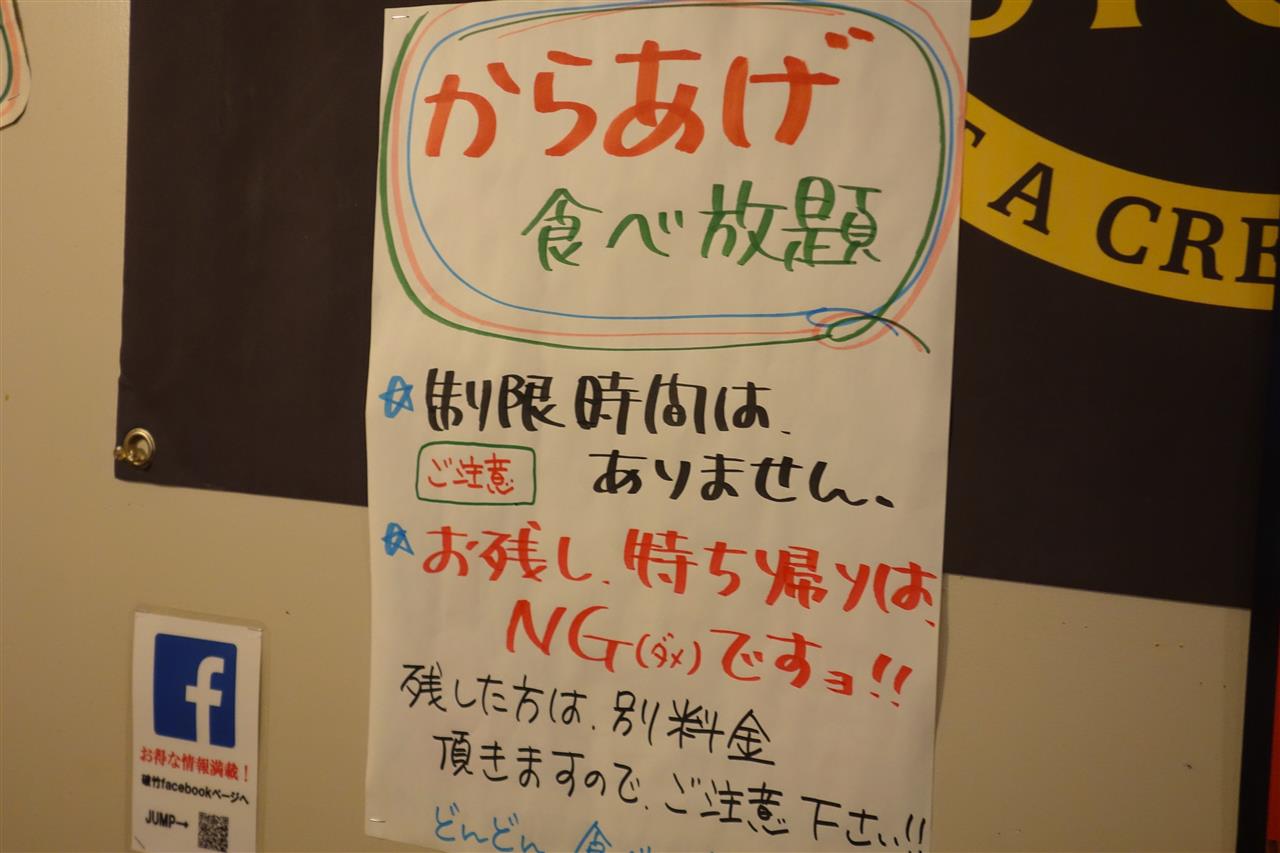 からあげ
食べ放題
☆制限時間は、
ありません、
ご注意
☆お残し、持ち帰りは、
NG(ダメ)ですョ!!
残した方は、別料金
頂きますので、ご注意下さい!!
どんどん食べ
f
お得な情報満載!
磯竹facebookページへ
JUMP→
TA CRE